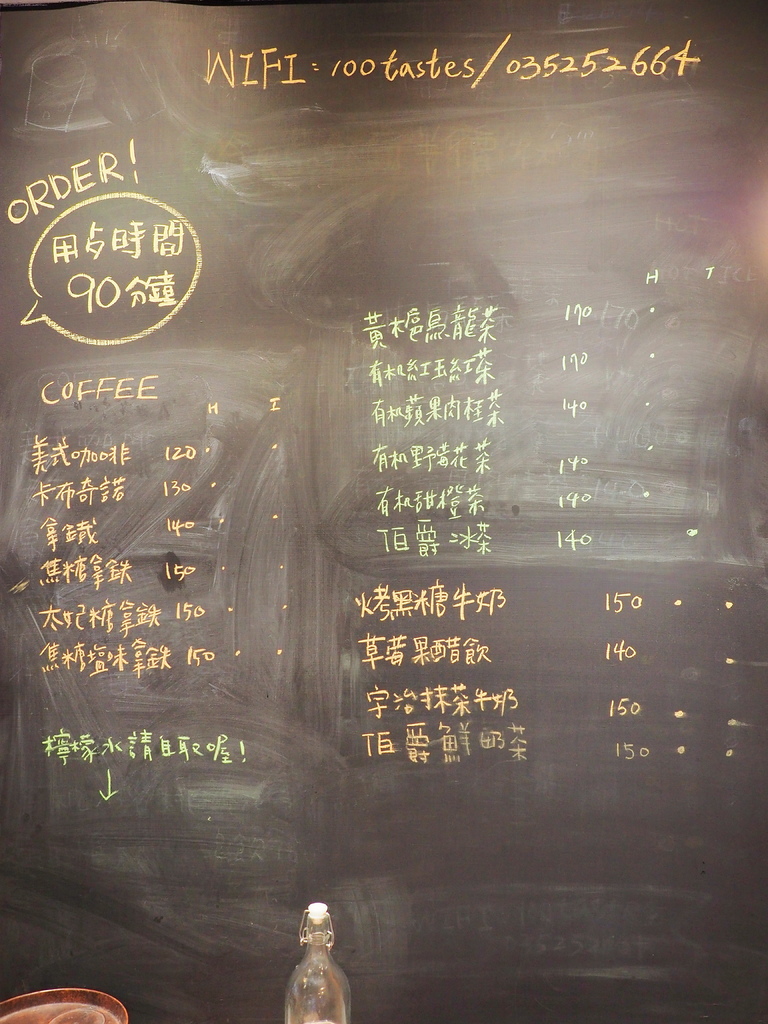 WIFI: 100tastes/035252664
ORDER!
用占時間
90分鐘
COFFEE
H I
美式咖啡 120
卡布奇諾 130
拿鐵 140
焦糖拿鉄 150
太妃糖拿鉄 150
焦糖塩味拿鉄 150
檸檬水請自取喔!
↓
H I
黃梔烏龍茶 170
有机紅玉紅茶 170
有机蘋果肉桂茶 140
有机野莓花茶 140
有机甜橙茶 140
伯爵冰茶 140
烤黑糖牛奶 150
草莓果醋飲 140
宇治抹茶牛奶 150
伯爵鮮奶茶 150